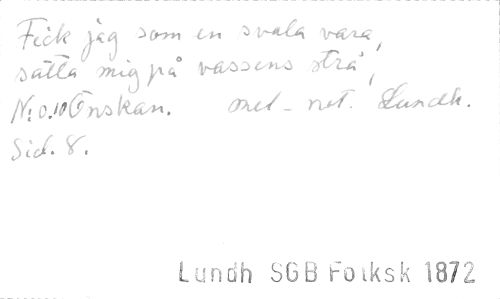 Fick jag som en svala vara,
sätta mig på vassens strå,
N:o.10 Önskan. mel-not. Lundh.
Sid. 8.
Lundh SGB Folksk 1872